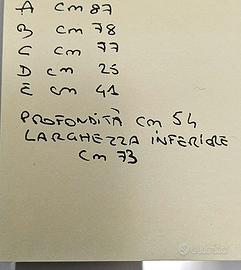 A cm 87
B cm 78
C cm 77
D cm 25
E cm 41
PROFONDITÀ cm 54
LARGHEZZA INFERIORE
cm 73